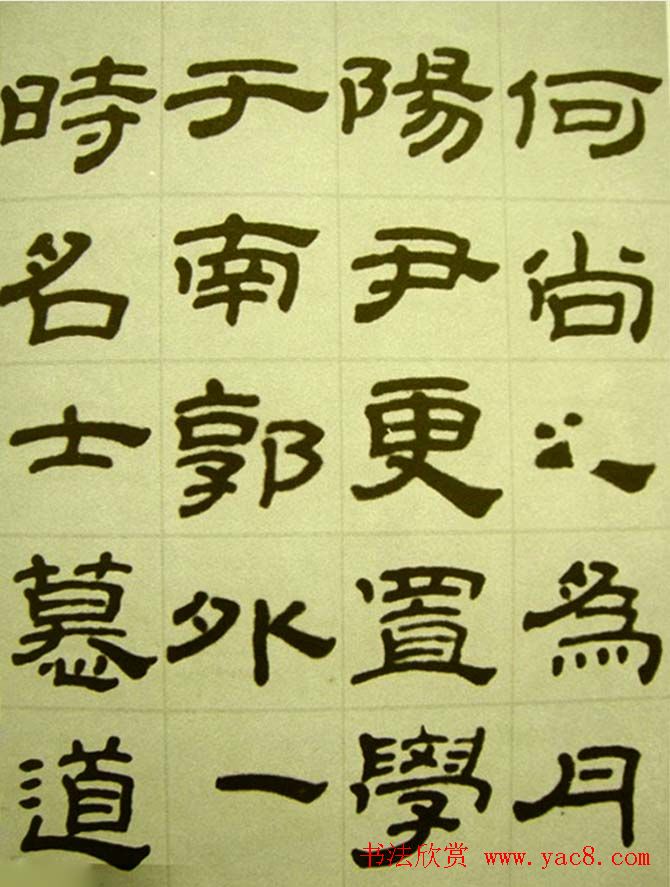 何尚之為丹
陽尹更置學
于南郭外一
時名士慕道
书法欣赏 www.yac8.com